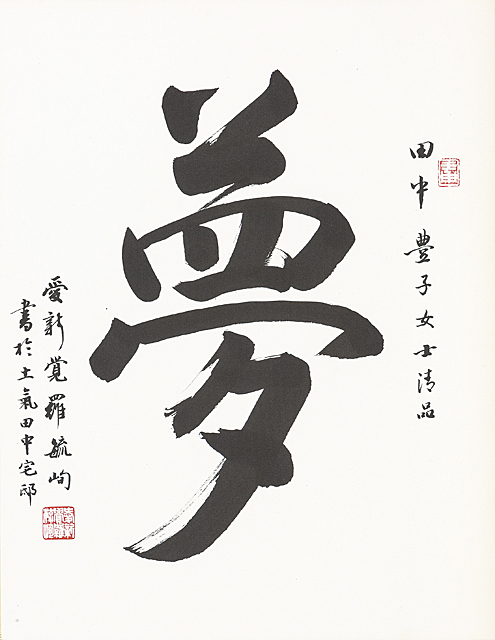 田中豊子女士清品
夢
愛新覚羅毓峋
書於土氣田中宅邸